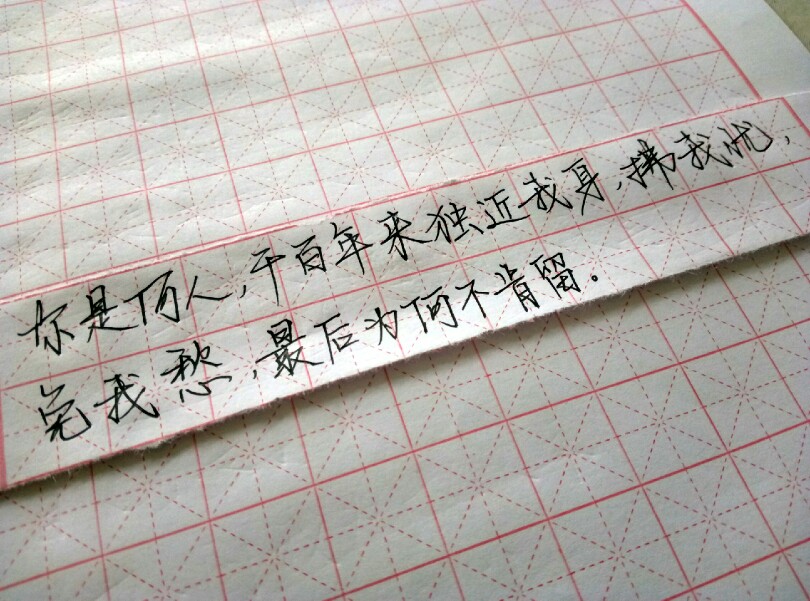 你是何人，千百年来独近我身，拂我忧，
免我愁，最后为何不肯留。